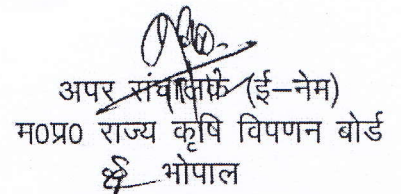 अपर संचालक (ई–नेम)
म0प्र0 राज्य कृषि विपणन बोर्ड
भोपाल